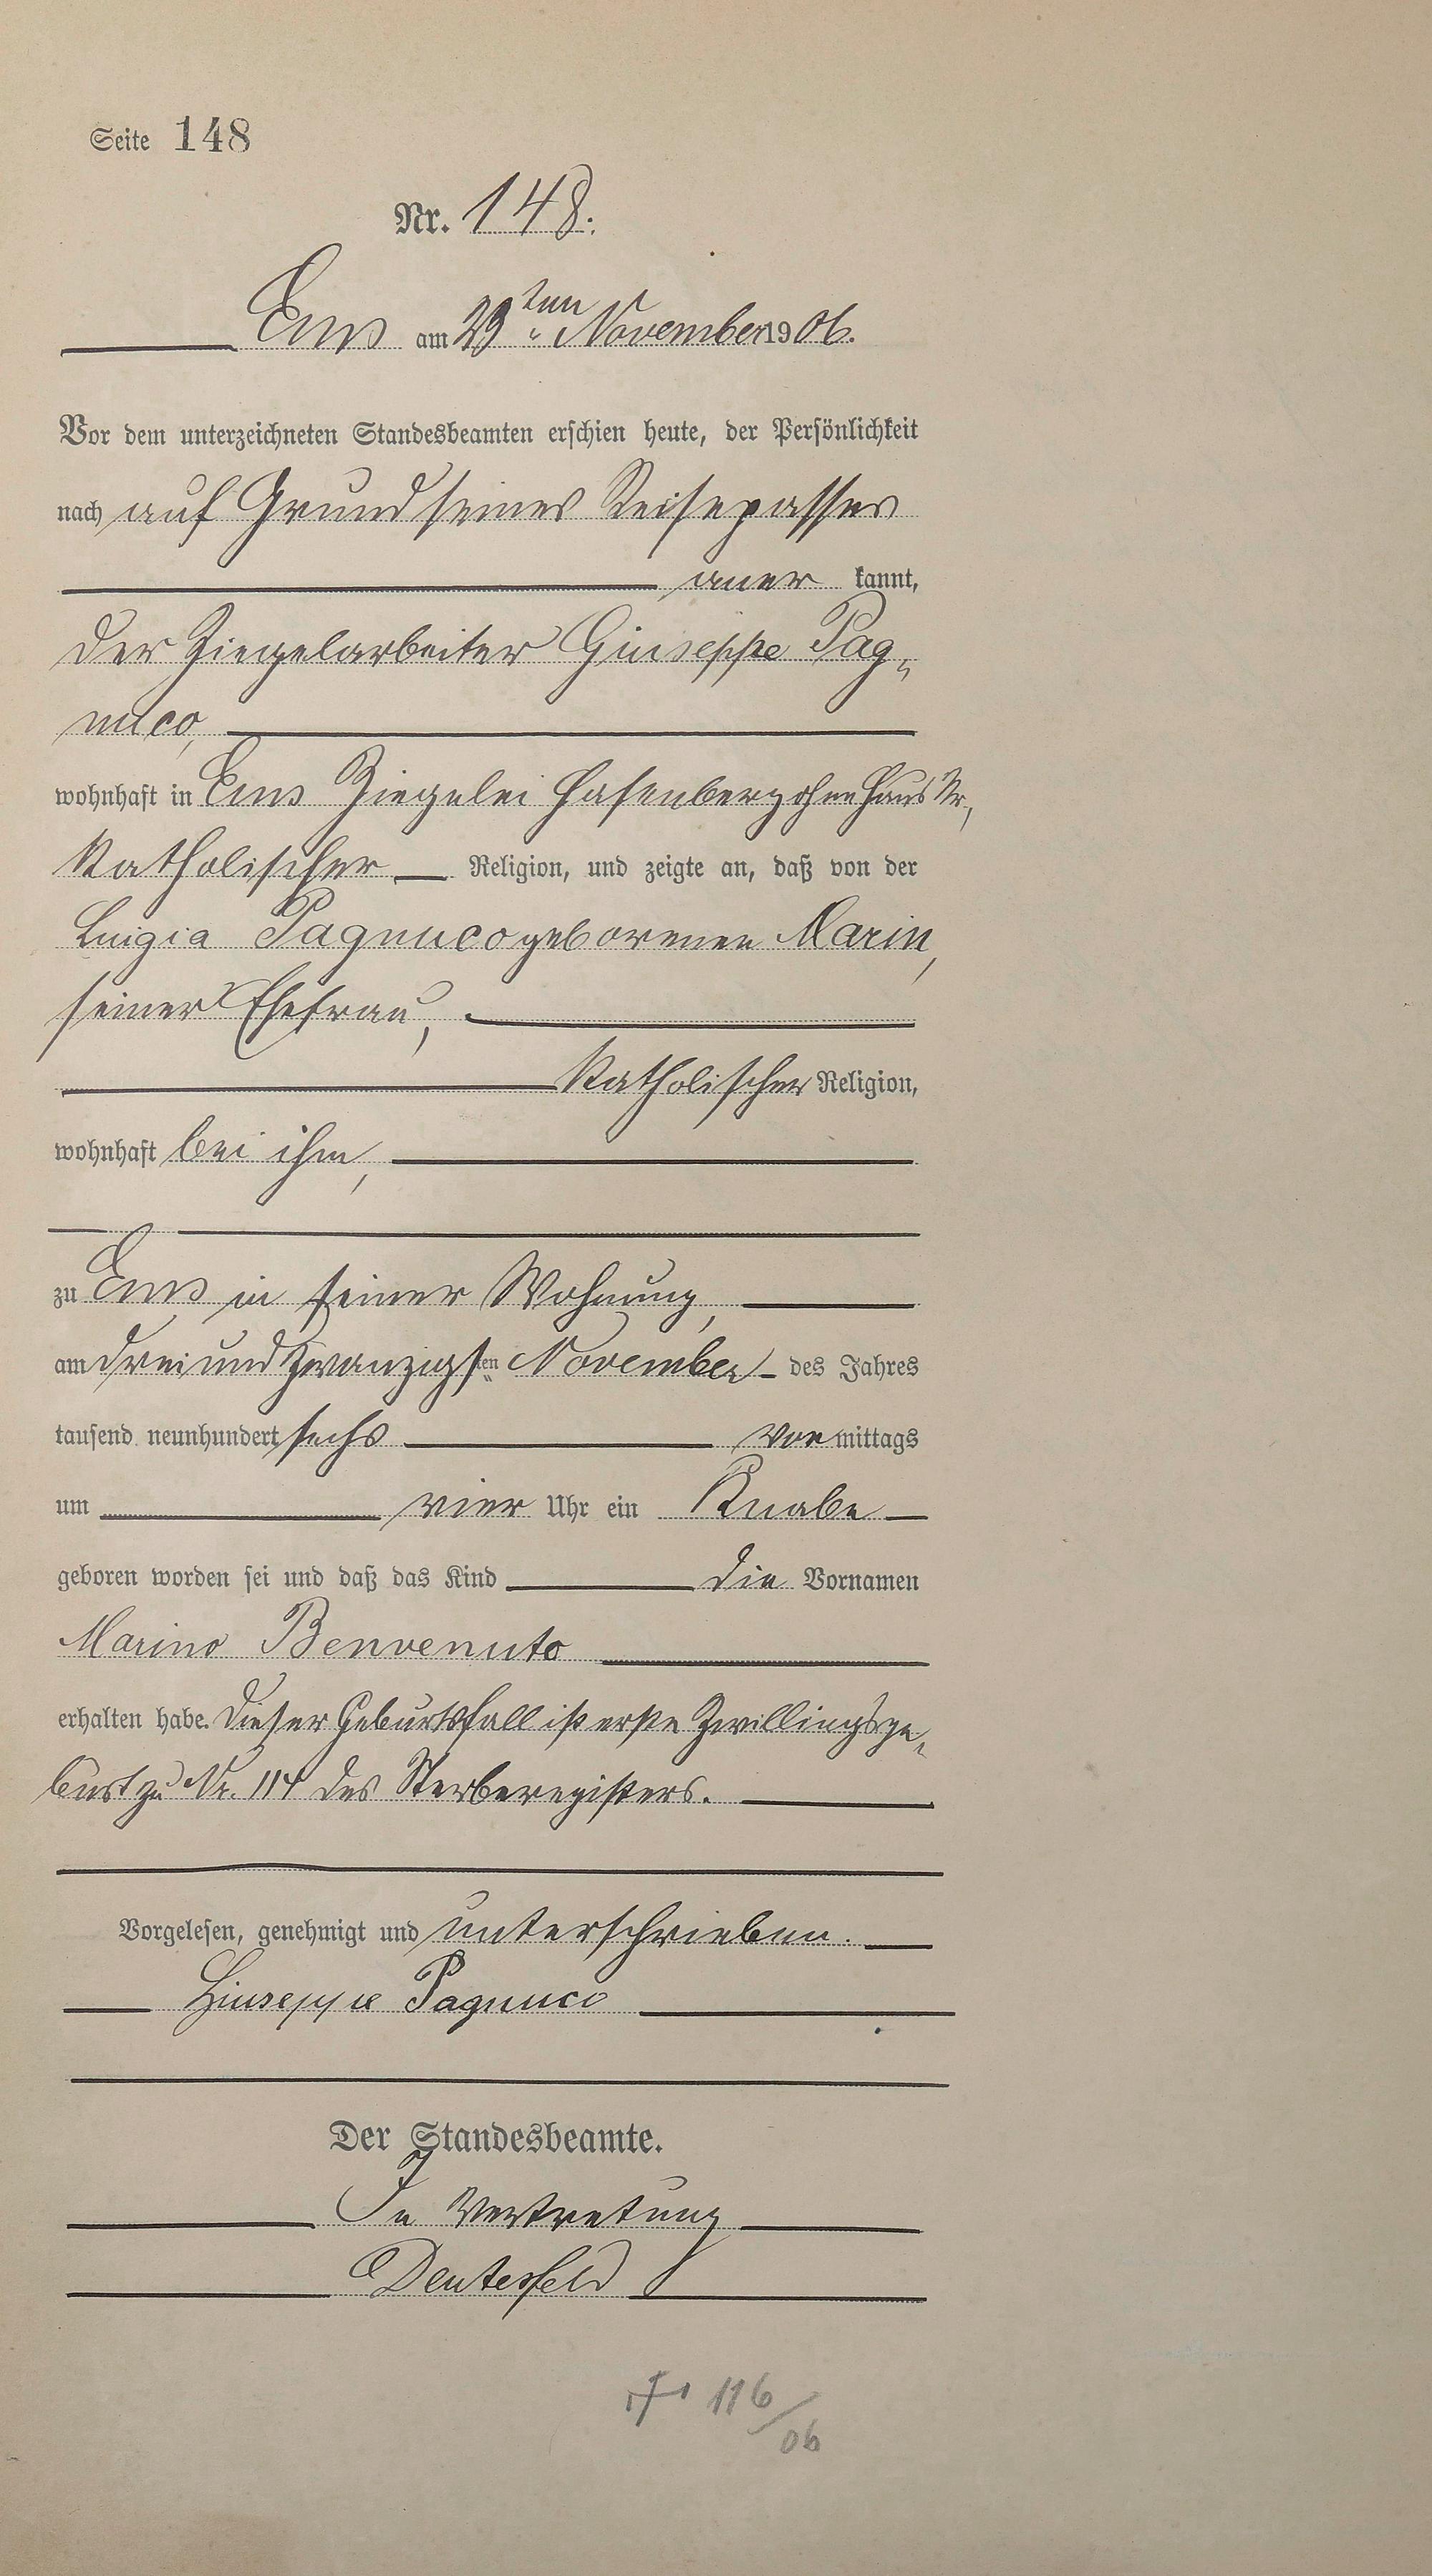 Seite 148
Nr. 148.
Ems am 23ten November 1906.
Vor dem unterzeichneten Standesbeamten erschien heute, der Persönlichkeit
nach auf Grund seines Reisepasses
aner kannt,
der Ziegelarbeiter Giuseppe Pag„
nuco,
wohnhaft in Ems Ziegelei Hasenberg ohne Haus Nr,
katholischer Religion, und zeigte an, daß von der
Luigia Pagnuco geborenen Marin,
seiner Ehefrau,
katholischer Religion,
wohnhaft bei ihm,
zu Ems in seiner Wohnung,
am dreiundzwanzigsten November des Jahres
tausend neunhundert sechs vor mittags
um vier Uhr ein Knabe
geboren worden sei und daß das Kind die Vornamen
Marino Benvenuto
erhalten habe. Dieser Geburtsfall ist erste Zwillingsge„
burt zu Nr. 114 des Sterberegisters.
Vorgelesen, genehmigt und unterschrieben.
Giuseppe Pagnuco
Der Standesbeamte.
In Vertretung
Deutesfeld
† 116/06